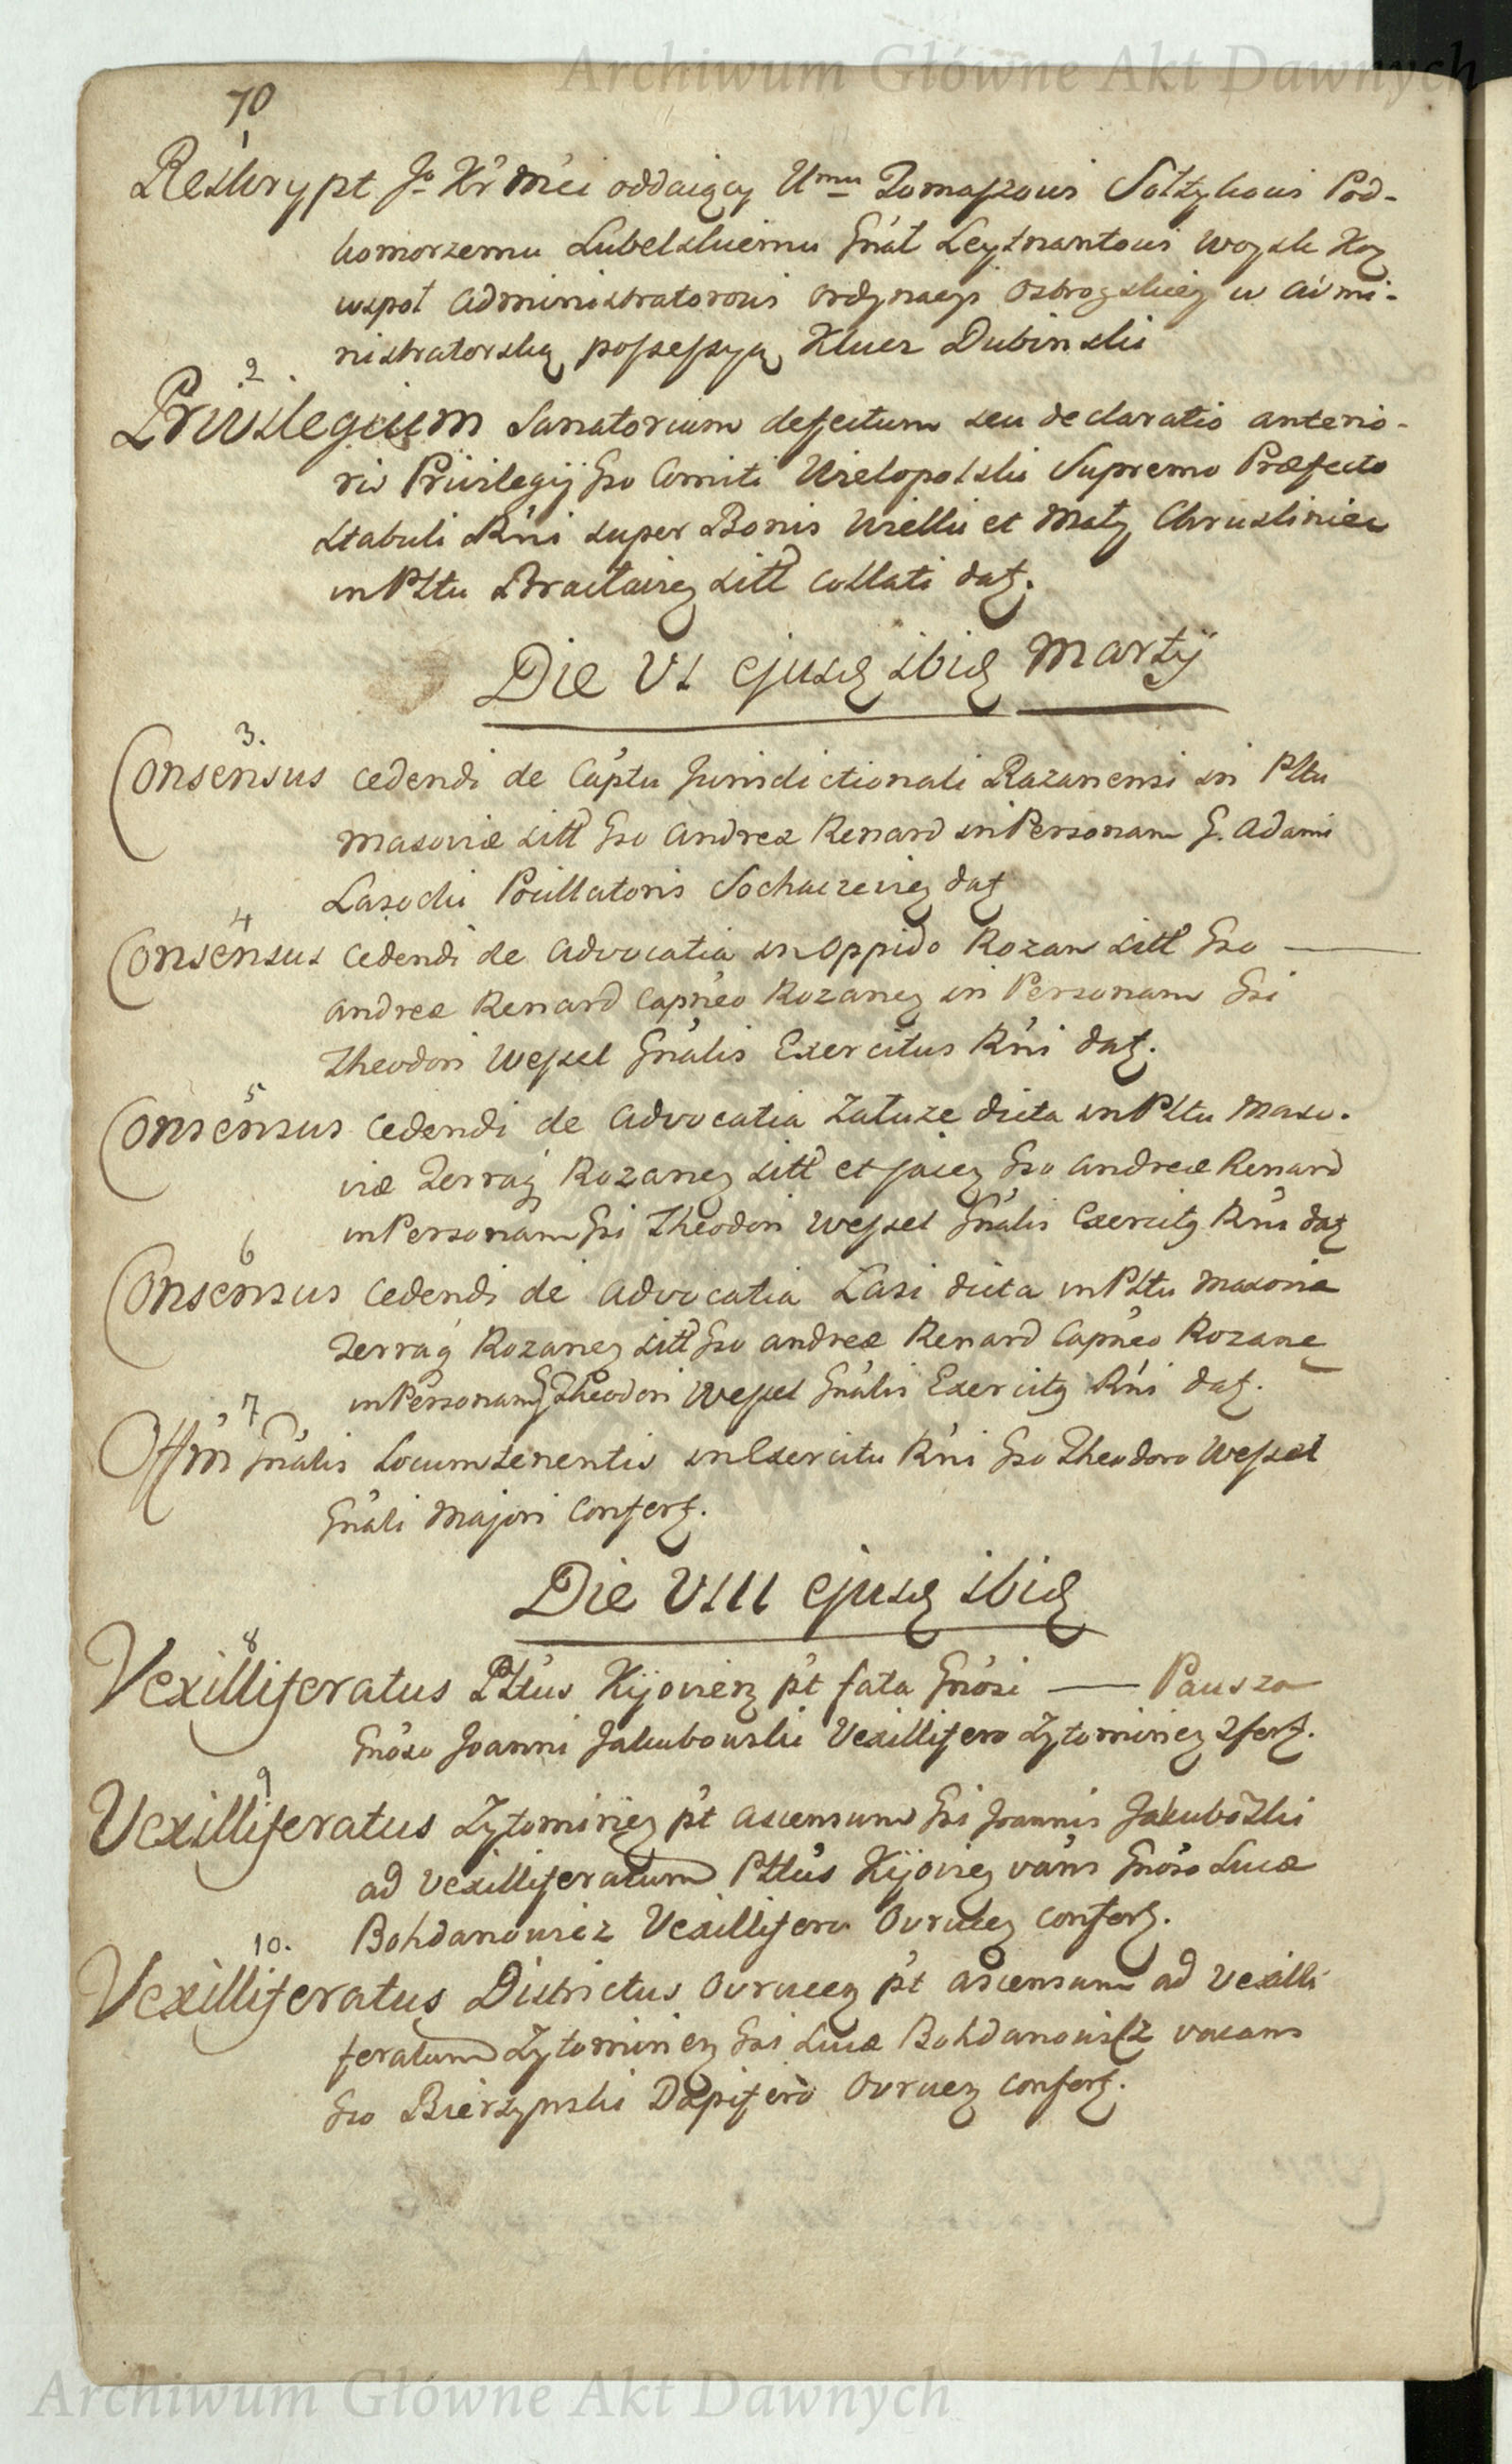 Archiwum Główne Akt Dawnych
70
1
Reskrypt Jo Kr Mci oddaiący Umu Tomaszowi Sołtykowi Pod-
komorzemu Lubelskiemu Gnał Leytnantowi woysk Kor
wspoł Administratorowi Ordynacyi Ostrogskiey w Admi-
nistratorską possessyą Klucz Dubinski
2
Privilegium Sanatorium defectum seu declaratio anterio-
ris Privilegij Gso Comiti Wielopolski Supremo Præfecto
Stabuli Rni super Bonis Wielki et Małÿ Chrusliniec
in Pltu Braclavieȝ sitt collati datȝ.
Die VI ejusdȝ ibidȝ Martij
3.
Consensus cedendi de Captu Jurisdictionali Rozanensi in Pltu
Masoviæ sitt Gso Andreæ Renard in Personam G. Adami
Lasocki Pocillatoris Sochaczevieȝ datȝ
4
Consensus cedendi de Advocatia in Oppido Rozan sitt Gso —
Andreæ Renard Capneo Rozaneȝ in Personam Gsi
Theodori Wessel Gnalis Exercitus Rni datȝ.
5
Consensus cedendi de Advocatia Załuze dicta in Pltu Maso.
viæ Terraq Rozaneȝ sitt et jaceȝ Gso Andreæ Renard
in Personam Gsi Theodori Wessel Gnalis Exercitȝ Rni datȝ
6
Consensus cedendi de Advocatia Lasi dicta in Pltu Masoviæ
Terraq Rozaneȝ sitt Gso Andreæ Renard Capneo Rozane
in Personam G Theodori Wessel Gnalis Exercitȝ Rni datȝ.
7
Offm Gnalis Locumtenentis in Exercitu Rni Gso Theodoro Wessel
Gnali Majori Confertȝ.
Die VIII ejusdȝ ibidȝ
8
Vexilliferatus Pltus Kijovieȝ pt fata Gnosi — Pausza
Gnoso Joanni Jakubowski Vexillifero Zytomirieȝ 2fertȝ.
9
Vexilliferatus Zytomirieȝ pt ascensum Gsi Joannis Jakubowski
ad Vexilliferatum Pltus Kijovieȝ vans Gnoso Lucæ
Bohdanowicz Vexillifero Ovruceȝ confertȝ.
10.
Vexilliferatus Districtus Ovruceȝ pt ascensum ad Vexilli
feratum Zytomirieȝ Gsi Lucæ Bohdanowicz vacans
Gso Bierzynski Dapifero Ovruceȝ confertȝ.
Archiwum Główne Akt Dawnych